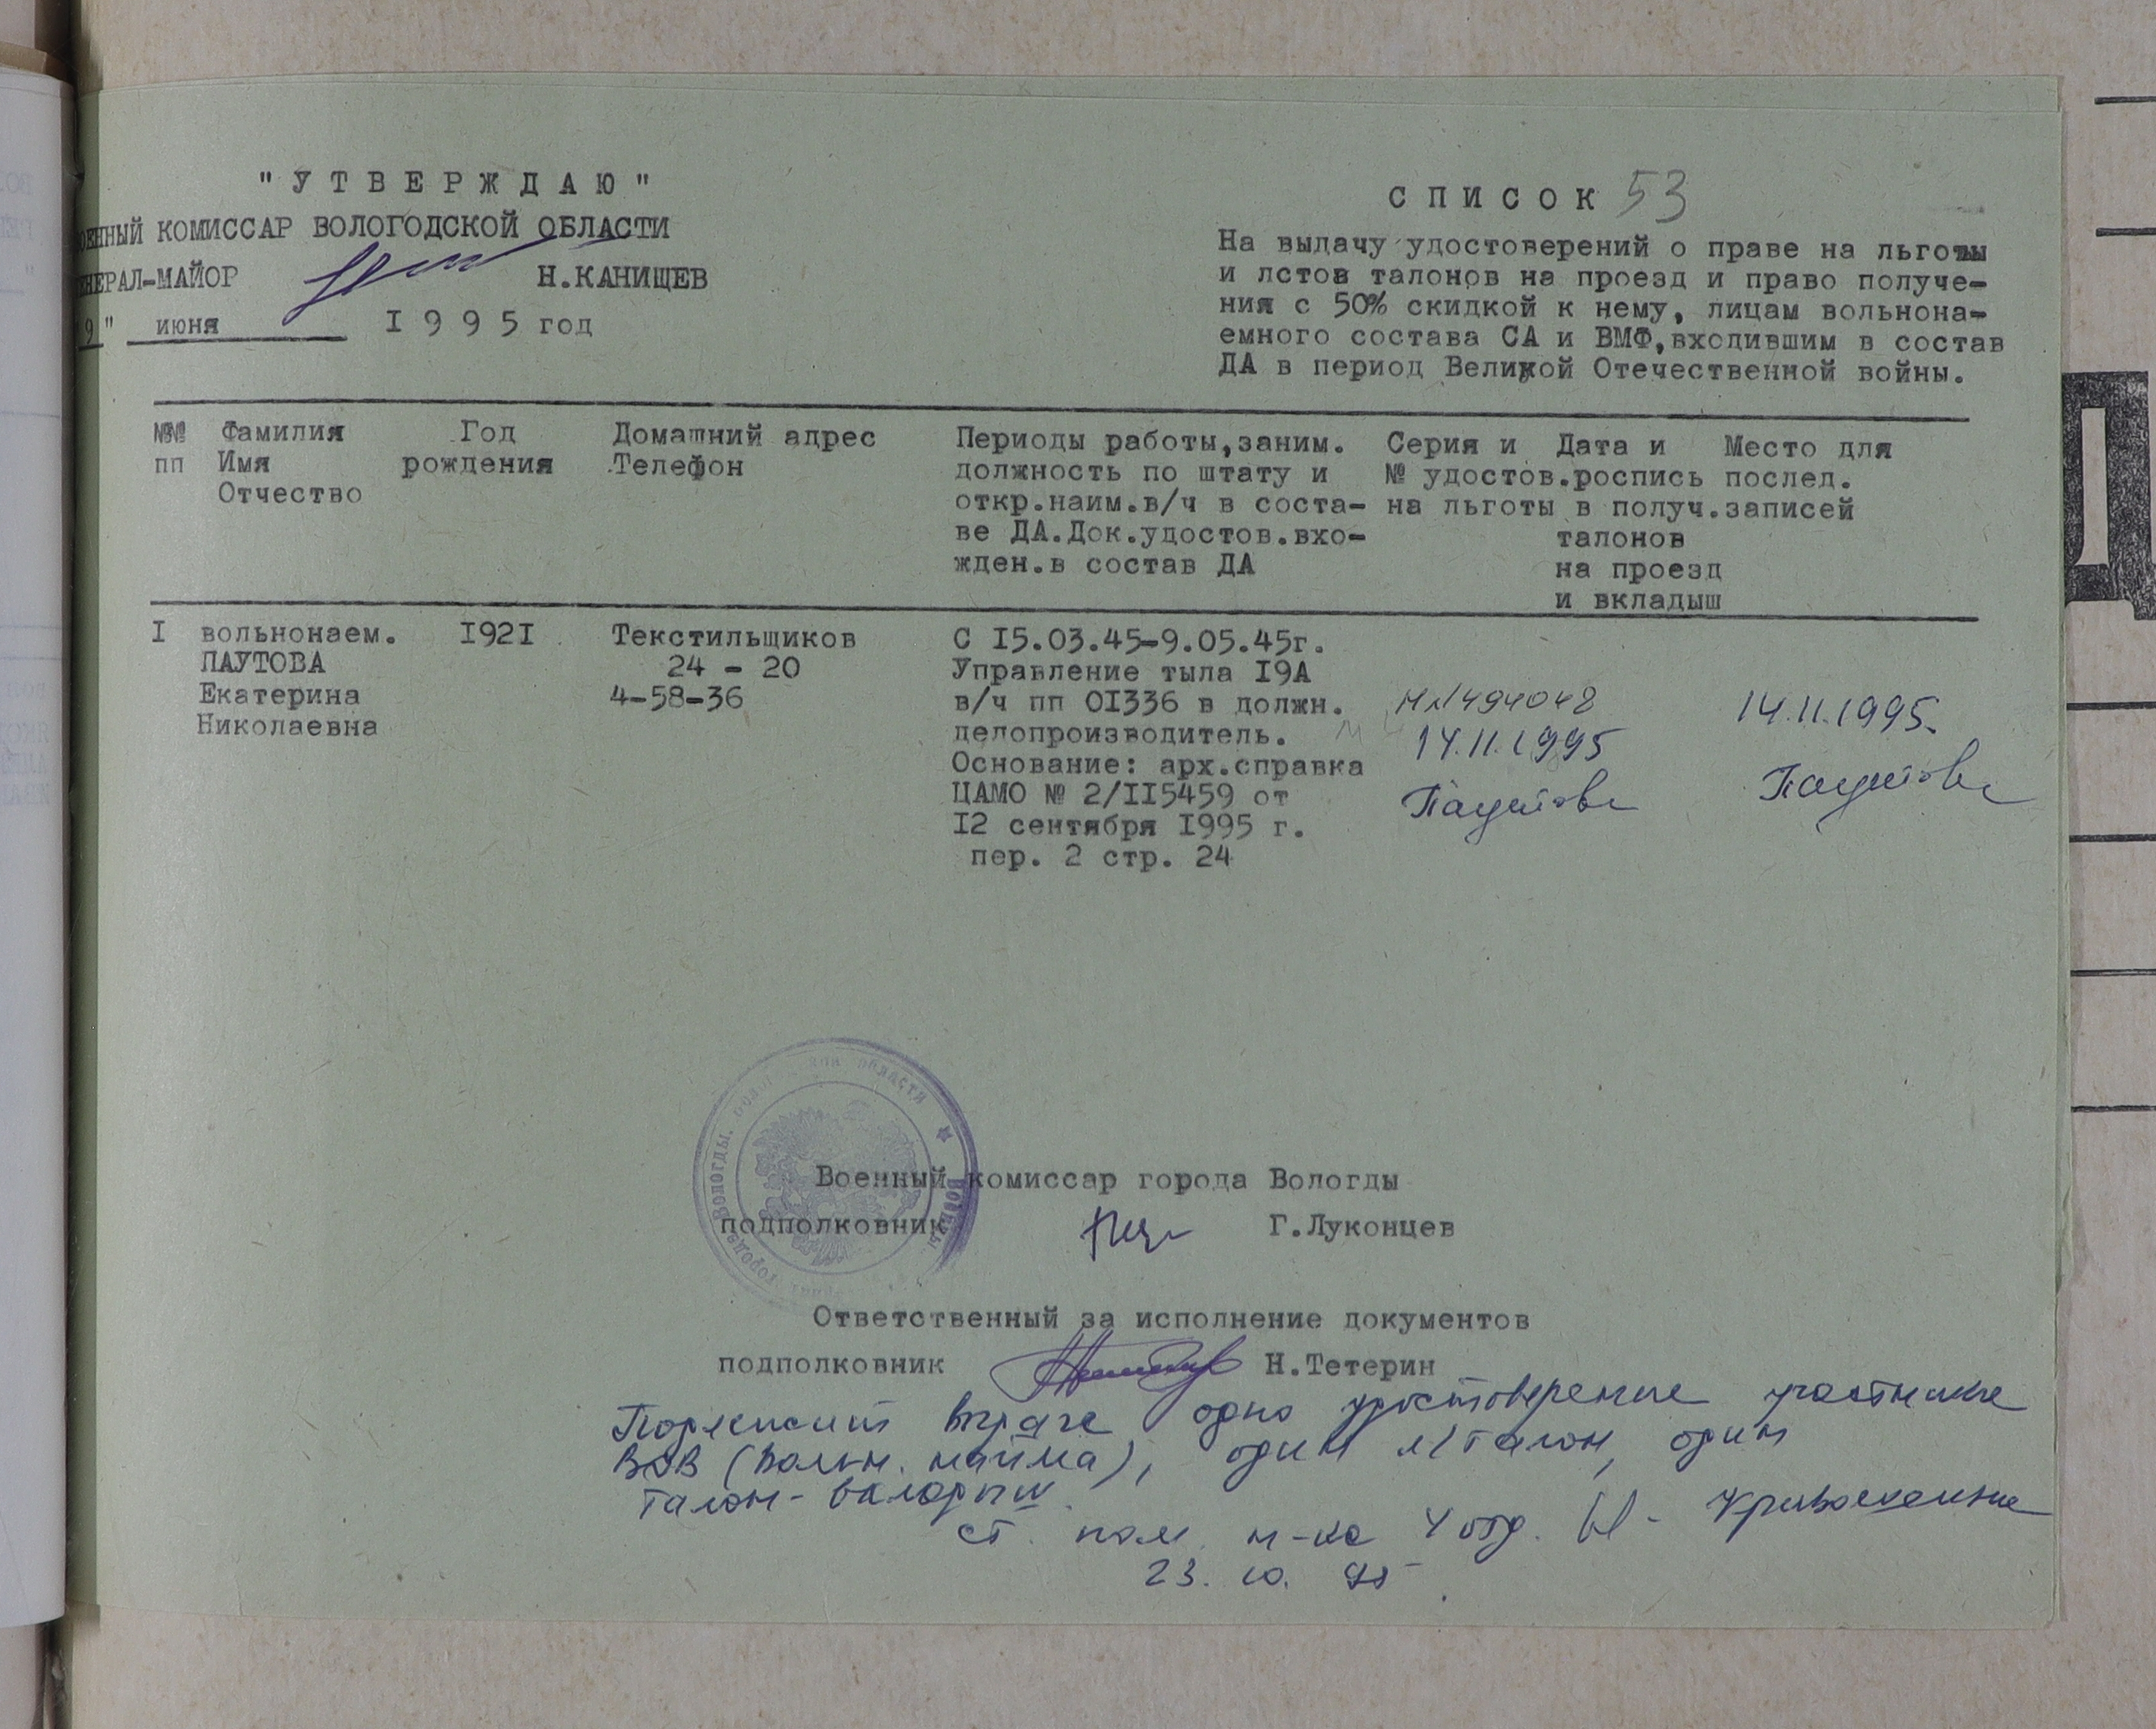 "УТВЕРЖДАЮ"
ОЕННЫЙ КОМИССАР ВОЛОГОДСКОЙ ОБЛАСТИ
ЕНЕРАЛ-МАЙОР Н.КАНИЩЕВ
9" июня 1995 год
СПИСОК 53
На выдачу удостоверений о праве на льготы
и лстов талонов на проезд и право получе-
ния с 50% скидкой к нему, лицам вольнона-
емного состава СА и ВМФ,входившим в состав
ДА в период Великой Отечественной войны.
№№ Фамилия Год Домашний адрес Периоды работы,заним. Серия и Дата и Место для
пп Имя рождения Телефон должность по штату и № удостов.роспись послед.
Отчество откр.наим.в/ч в соста- на льготы в получ.записей
ве ДА.Док.удостов.вхо- талонов
жден.в состав ДА на проезд
и вкладыш
I вольнонаем. I92I Текстильщиков С I5.03.45-9.05.45г.
ПАУТОВА 24 - 20 Управление тыла I9А
Екатерина 4-58-36 в/ч пп 0I336 в должн. 494048 14.11.1995.
Николаевна делопроизводитель. 14.11.1995
Основание: арх.справка Паутова
ЦАМО № 2/II5459 от Паутова
I2 сентября I995 г.
пер. 2 стр. 24
Военный комиссар города Вологды
подполковник Г.Луконцев
Ответственный за исполнение документов
подполковник Н.Тетерин
Подлежит выдаче одно удостоверение участника
ВОВ (вольн. найма), один л/талон, один
талон-вкладыш.
ст. пом. н-ка 4 отд.
23. 10. 95